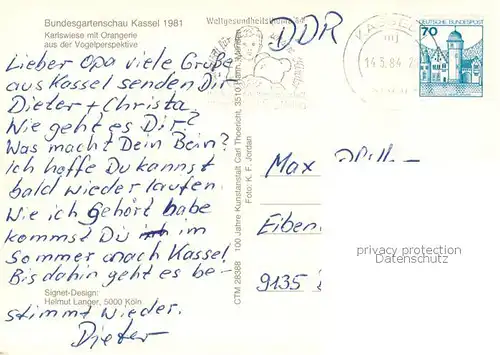 Bundesgartenschau Kassel 1981
Karlswiese mit Orangerie
aus der Vogelperspektive
Lieber Opa viele Grüße
aus Kassel senden Dir
Dieter + Christa.
Wie geht es Dir?
Was macht Dein Bein?
Ich hoffe Du kannst
bald wieder laufen.
Wie ich gehört habe
kommst Du im
Sommer nach Kassel
Bis dahin geht es be-
stimmt wieder.
Dieter
Signet-Design:
Helmut Langer, 5000 Köln
CTM 28388 100 Jahre Kunstanstalt Carl Thoericht, 3510 Hann. Münden
Foto: K. F. Jordan
Weltgesundheitstag
DDR
KASSEL
14.5.84
DEUTSCHE BUNDESPOST
70
Max
Eiben
9135
privacy protection
Datenschutz